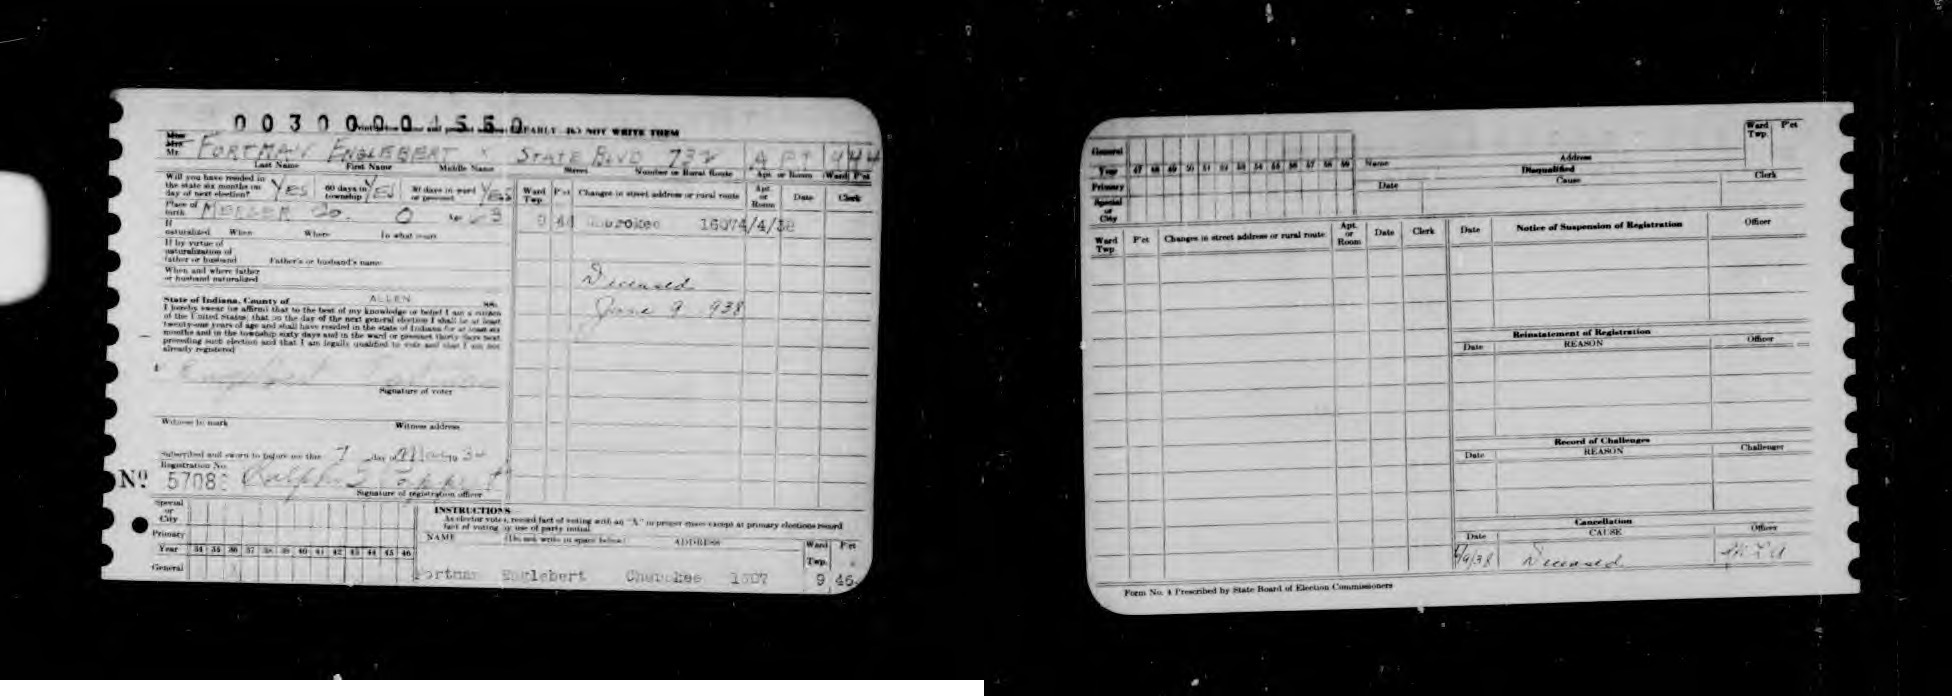 0030000 1550
Print ... DO NOT WRITE THEM
Miss
Mrs.
Mr. FORTMAN ENGLEBERT X STATE BLVD 732 APT 444
Last Name First Name Middle Name Street Number or Rural Route Apt. or Room Ward P'ct
Will you have resided in the state six months on day of next election? YES 60 days in township YES 30 days in ward or precinct YES
Place of birth MERCER Co. O Age 63
If naturalized When Where In what court
If by virtue of naturalization of father or husband Father's or husband's name
When and where father or husband naturalized
State of Indiana, County of ALLEN ss.
I hereby swear (or affirm) that to the best of my knowledge or belief I am a citizen
of the United States; that on the day of the next general election I shall be at least
twenty-one years of age and shall have resided in the state of Indiana for at least six
months and in the township sixty days and in the ward or precinct thirty days next
preceding such election and that I am legally qualified to vote and that I am not
already registered
Signature of voter
Witness to mark Witness address
Subscribed and sworn to before me this 7 day of 19 34
Registration No.
No 5708 Ralph
Signature of registration officer
Ward Twp. P'ct Changes in street address or rural route Apt. or Room Date Clerk
9 Cherokee 1607 4/4/38
Deceased
June 9 938
Special or City
Primary
Year 34 35 36 37 38 39 40 41 42 43 44 45 46
General X
INSTRUCTIONS
As elector votes, record fact of voting with an "X" in proper space except at primary elections record
fact of voting by use of party initial
NAME (Do not write in space below) ADDRESS Ward Twp. P'ct
Fortman Englebert Cherokee 1607 9 46
General
Year 47 48 49 50 51 52 53 54 55 56 57 58 59
Primary
Special or City
Name Address Ward Twp. P'ct
Disqualified
Date Cause Clerk
Ward Twp. P'ct Changes in street address or rural route Apt. or Room Date Clerk
Date Notice of Suspension of Registration Officer
Reinstatement of Registration
Date REASON Officer
Record of Challenges
Date REASON Challenger
Cancellation
Date CAUSE Officer
6/9/38 Deceased
Form No. 4 Prescribed by State Board of Election Commissioners